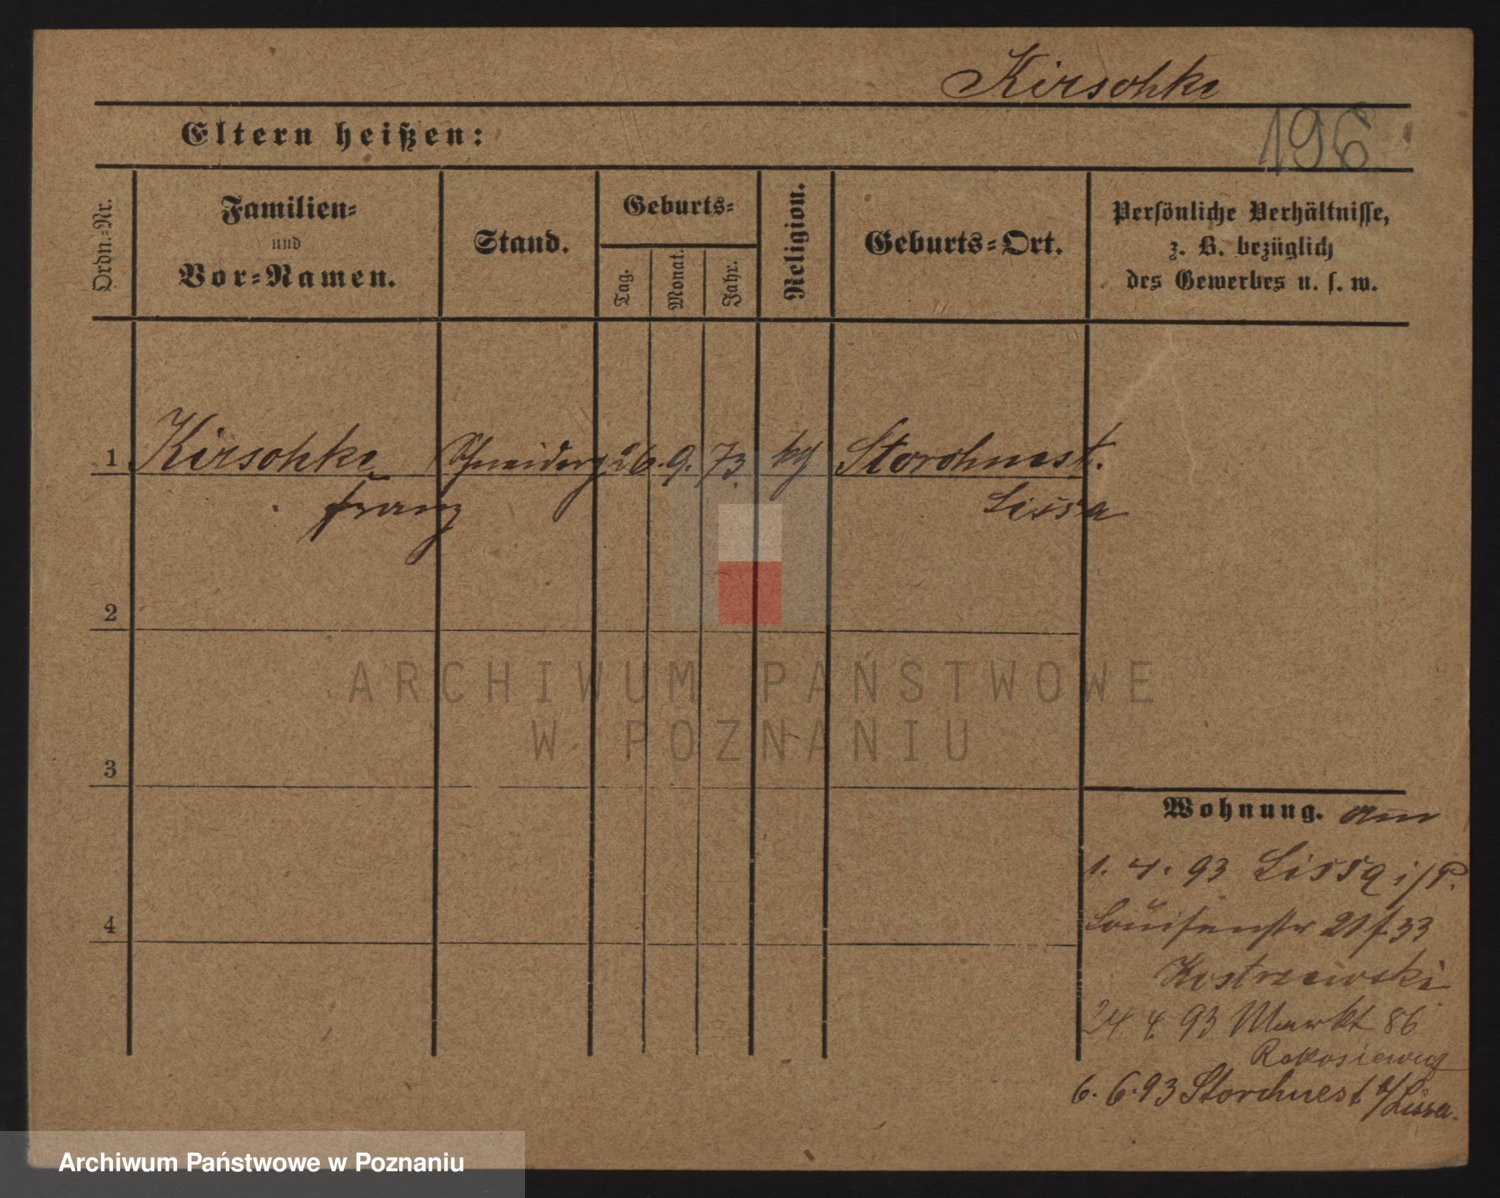 Kirschke
196
Eltern heißen:
Ordn.-Nr.
Familien-
und
Vor-Namen.
Stand.
Geburts-
Tag.
Monat.
Jahr.
Religion.
Geburts-Ort.
Persönliche Verhältnisse,
z. B. bezüglich
des Gewerbes u. s. w.
1 Kirschke Schneiderg 26. 9. 73. kg Storchnest.
Franz Lissa
2
3
4
Wohnung. am
1. 4. 93 Lissa i/P.
Louisenstr 21 f. 33
Kostrzewski
24 4. 93 Markt 86
6. 6. 93 Storchnest b/Lissa.
ARCHIWUM PAŃSTWOWE
W POZNANIU
Archiwum Państwowe w Poznaniu